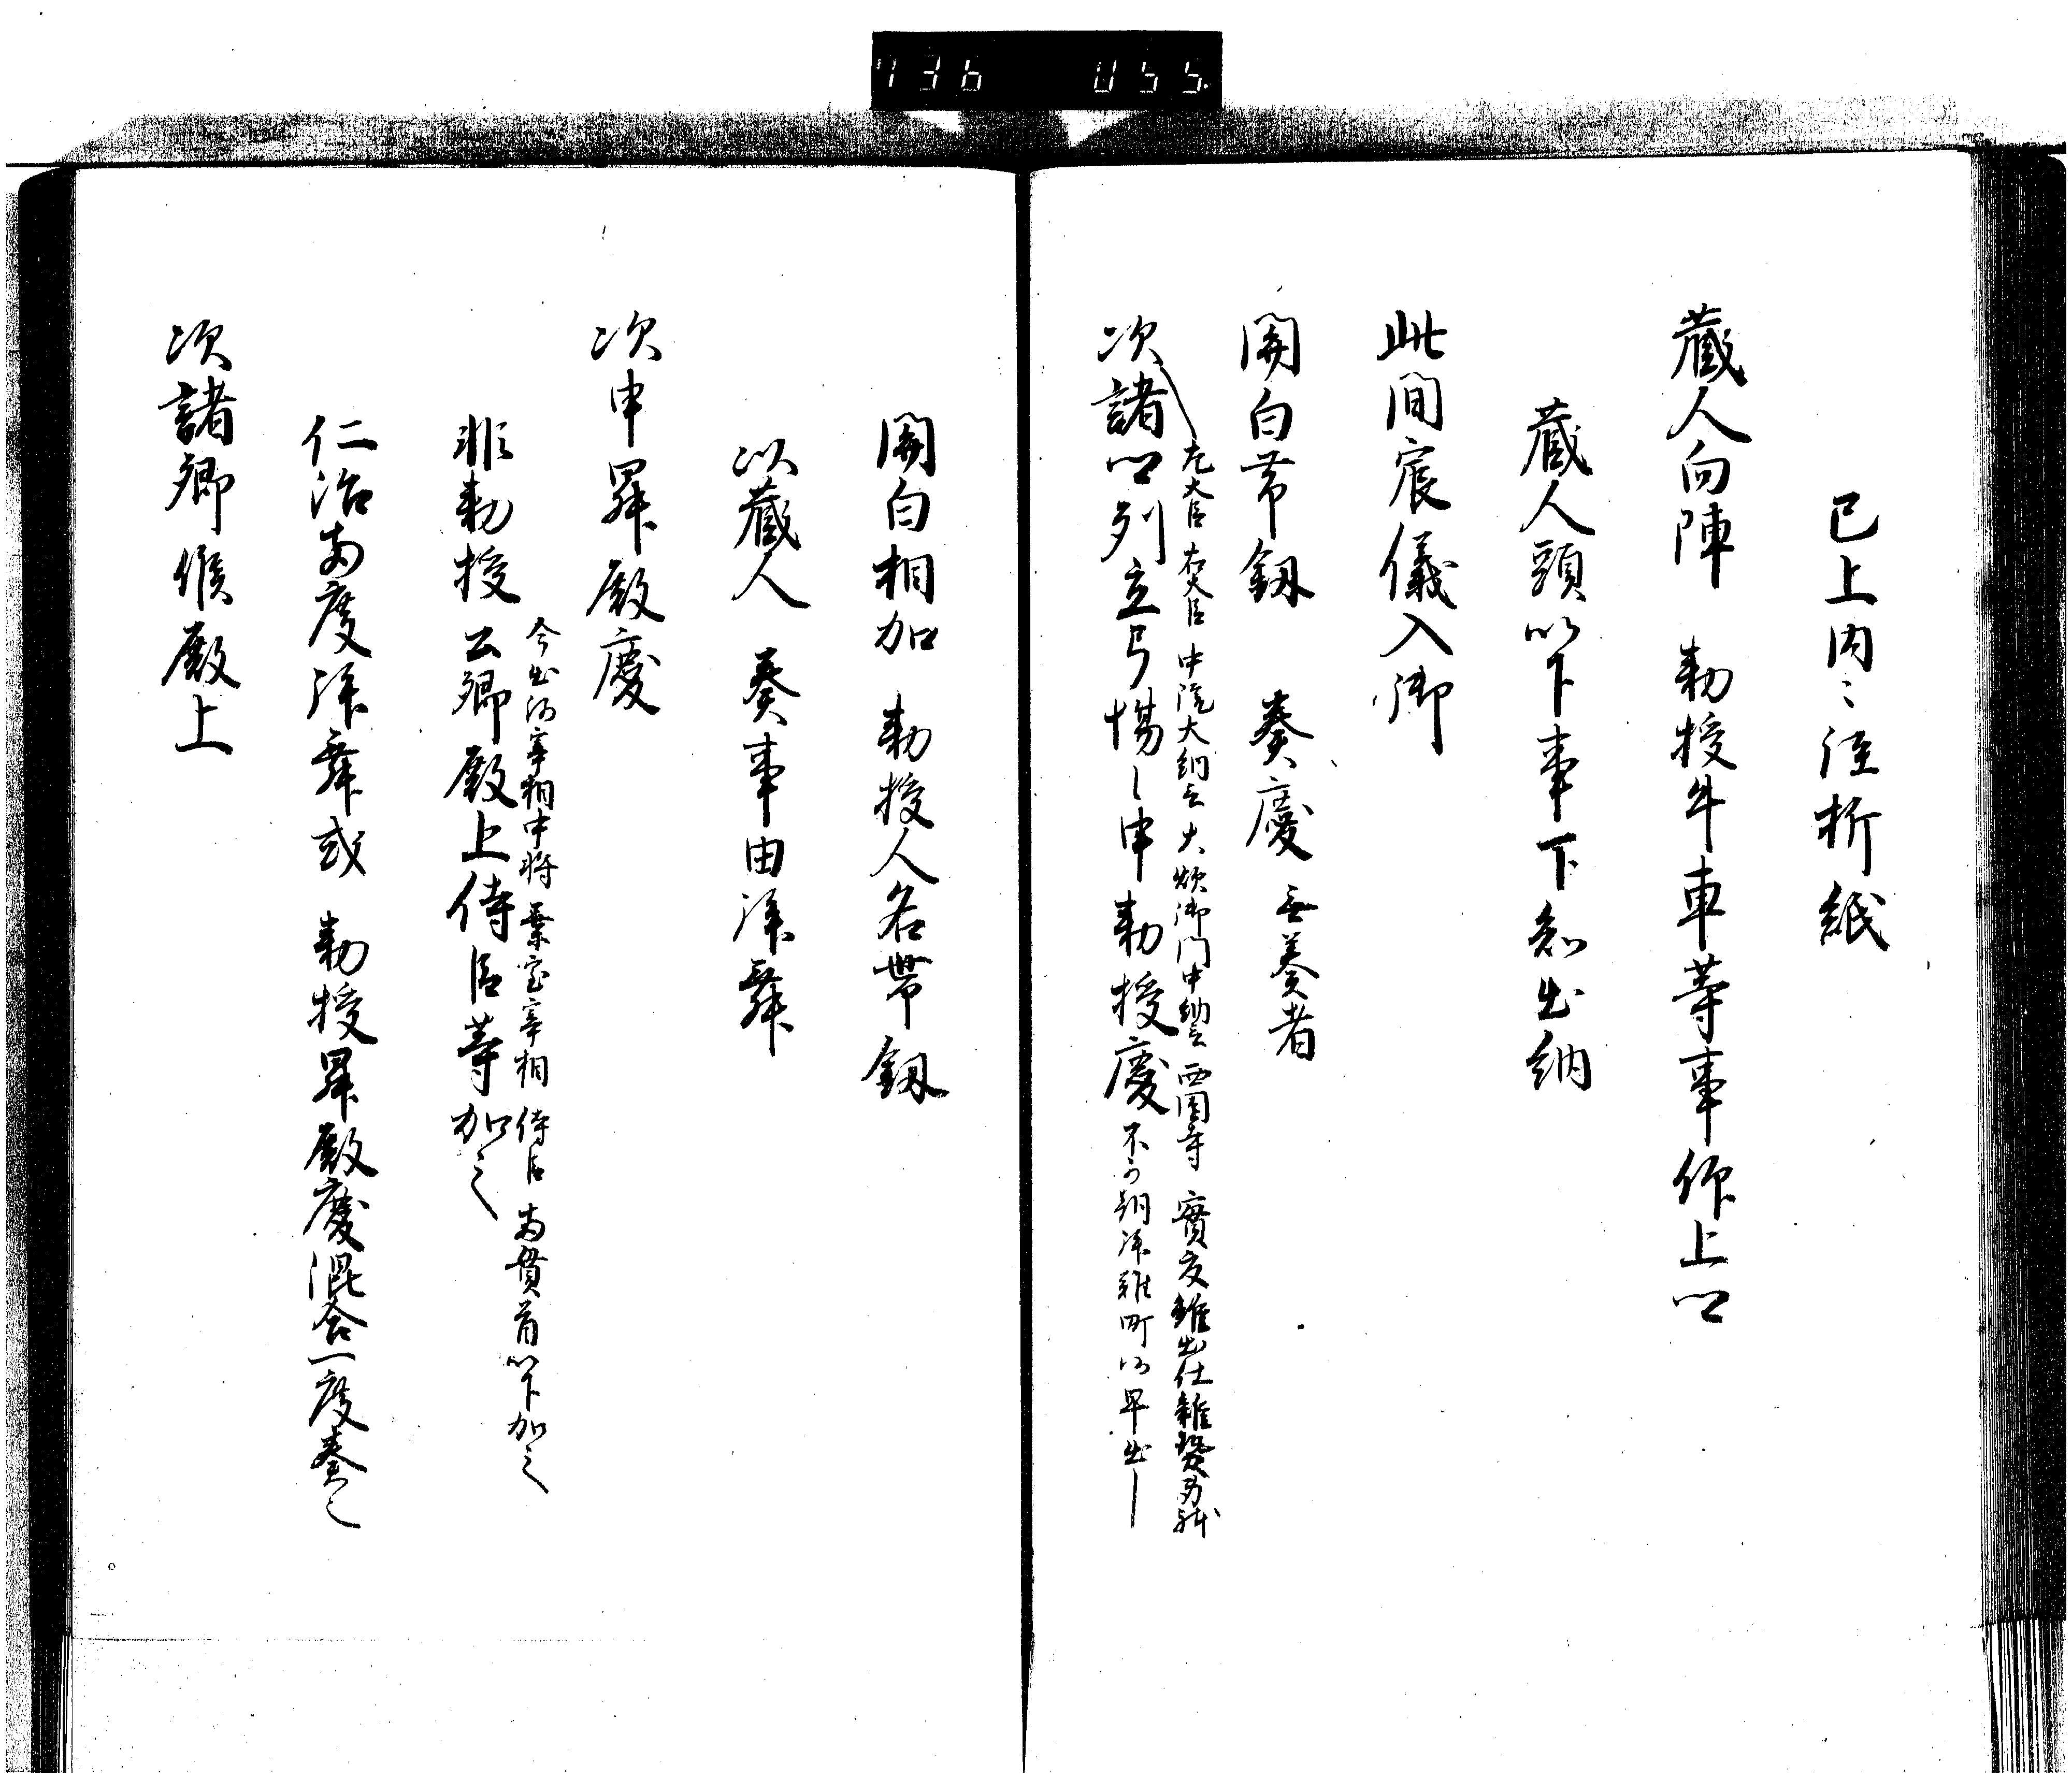 736 055
已上内〻注折紙
蔵人向陣 勅授牛車等事仰上卿
蔵人頭以下事下知出納
此間宸儀入御
関白帯釼 奏慶 無奏者
左大臣 右大臣 中院大納言 大炊御門中納言 西園寺 實友雖出仕
次諸卿列立弓場申勅授慶 早出
関白相加 勅授人名帯釼
以蔵人 奏事由拝舞
次申昇殿慶
今出河宰相中将 葉室宰相 侍臣 両貫首以下加之
非勅授公卿殿上侍臣等加之
仁治両度拝舞或 勅授昇殿慶混合一度奏之
次諸卿候殿上